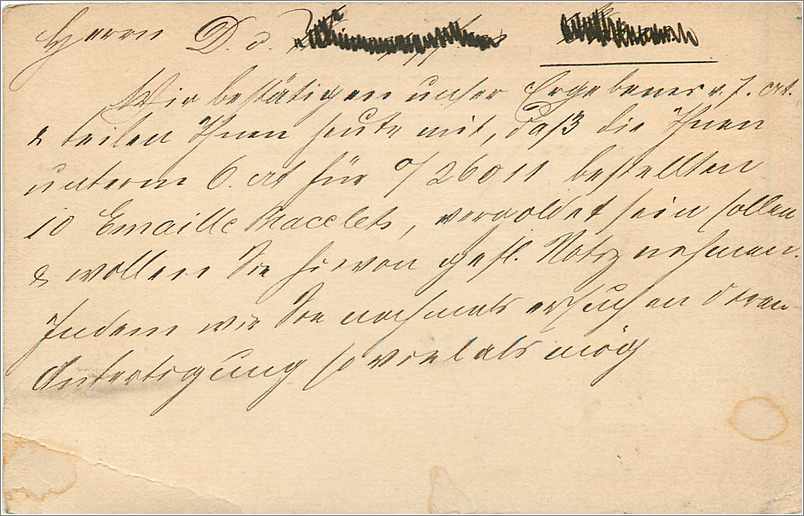 Herrn D. d.
Wir bestätigen unser Ergebenes v. 7. crt.
& teilen Ihnen heute mit, daß die Ihnen
unterm 6. crt für o/ 26011 bestellten
10 Emaille Bracelets, vergoldet sein sollen
& wollen Sie hievon gefl. Notiz nehmen.
Indem wir Sie nochmals ersuchen deren
Anfertigung so viel als mög